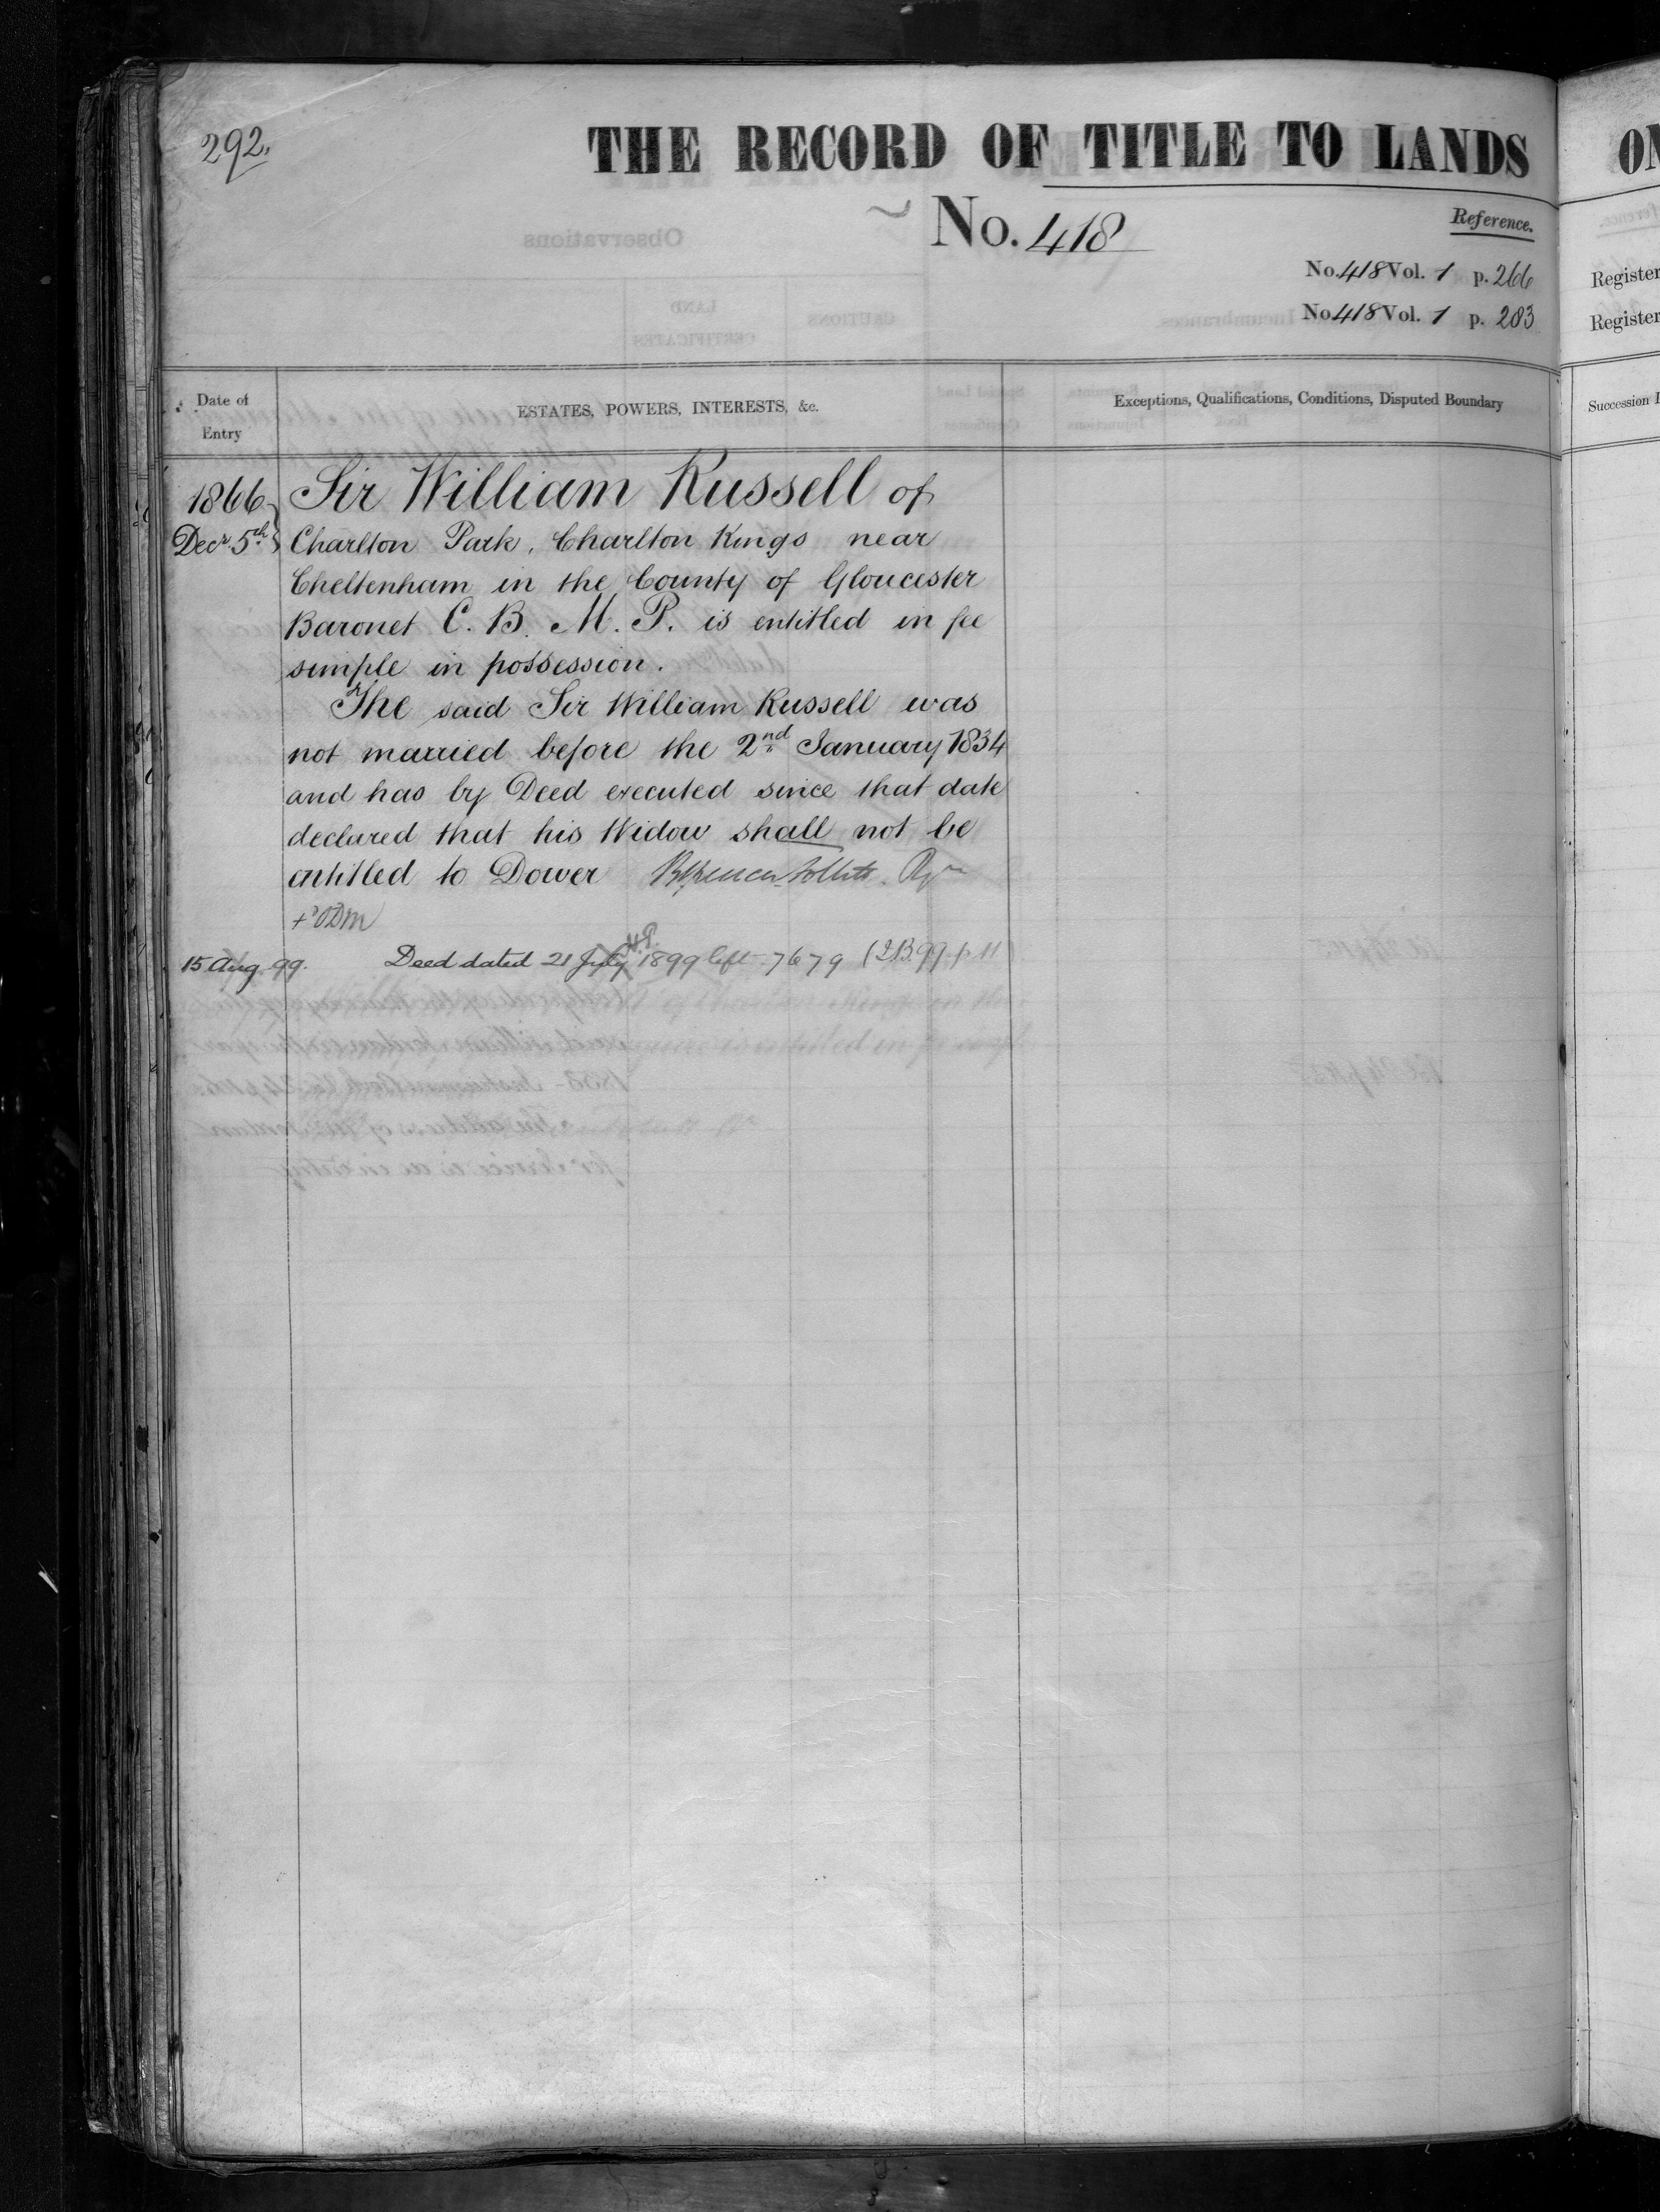 292.
THE RECORD OF TITLE TO LANDS
No. 418
Reference.
No. 418 Vol. 1 p. 266
No 418 Vol. 1 p. 283
Register
Register
Date of Entry
ESTATES, POWERS, INTERESTS, &c.
Exceptions, Qualifications, Conditions, Disputed Boundary
Succession
1866 Sir William Russell of
Decr. 5th Charlton Park, Charlton Kings near
Cheltenham in the County of Gloucester
Baronet C. B. M. P. is entitled in fee
simple in possession.
The said Sir William Russell was
not married before the 2nd January 1834
and has by Deed executed since that date
declared that his Widow shall not be
entitled to Dower
15 Aug. 99. Deed dated 21 July 1899 left 7679